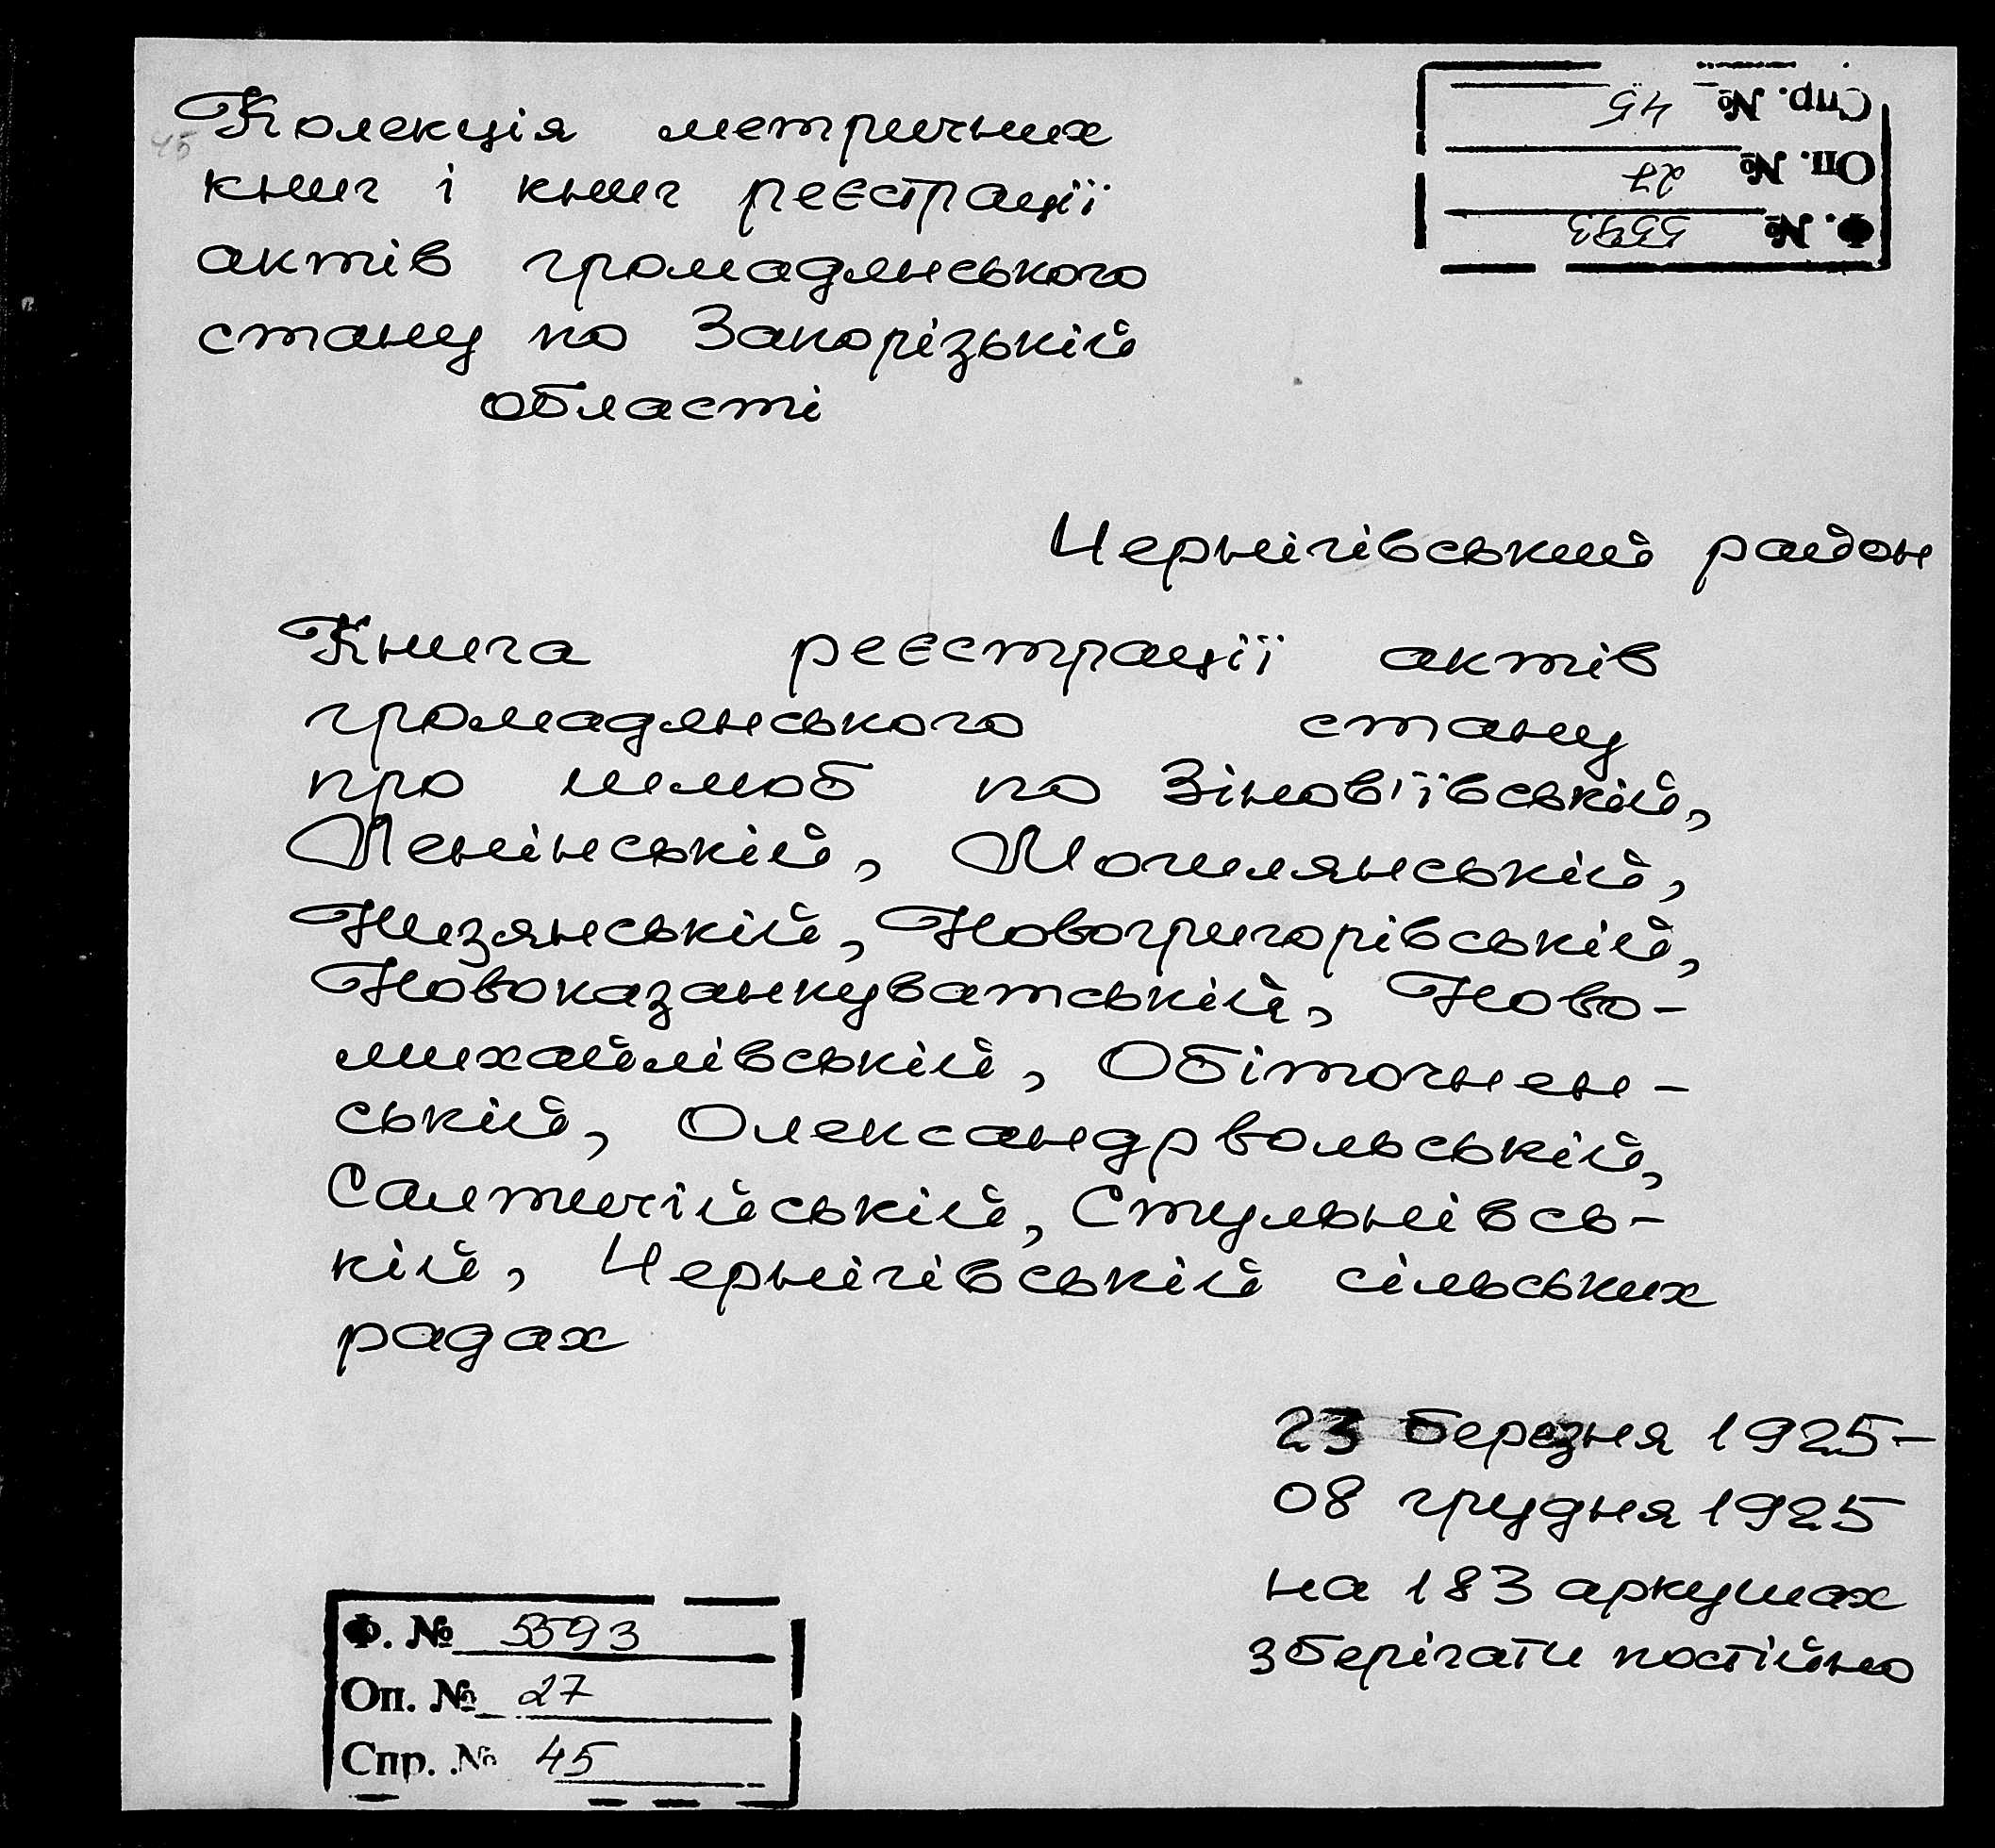 Колекція метричних
книг і книг реєстрації
актів громадянського
стану по Запорізькій
області
45
Спр. № 45
Оп. № 27
Ф. № 5593
Чернігівський район
Книга реєстрації актів
громадянського стану
про шлюб по Зінов'ївській,
Ленінській, Могилянській,
Низянській, Новогригорівській,
Новоказанкуватській, Ново-
михайлівській, Обіточнен-
ській, Олександрвольській,
Салтичійській, Стульнівсь-
кій, Чернігівській сільських
радах
23 березня 1925-
08 грудня 1925
на 183 аркушах
зберігати постійно
Ф. № 5593
Оп. № 27
Спр. № 45